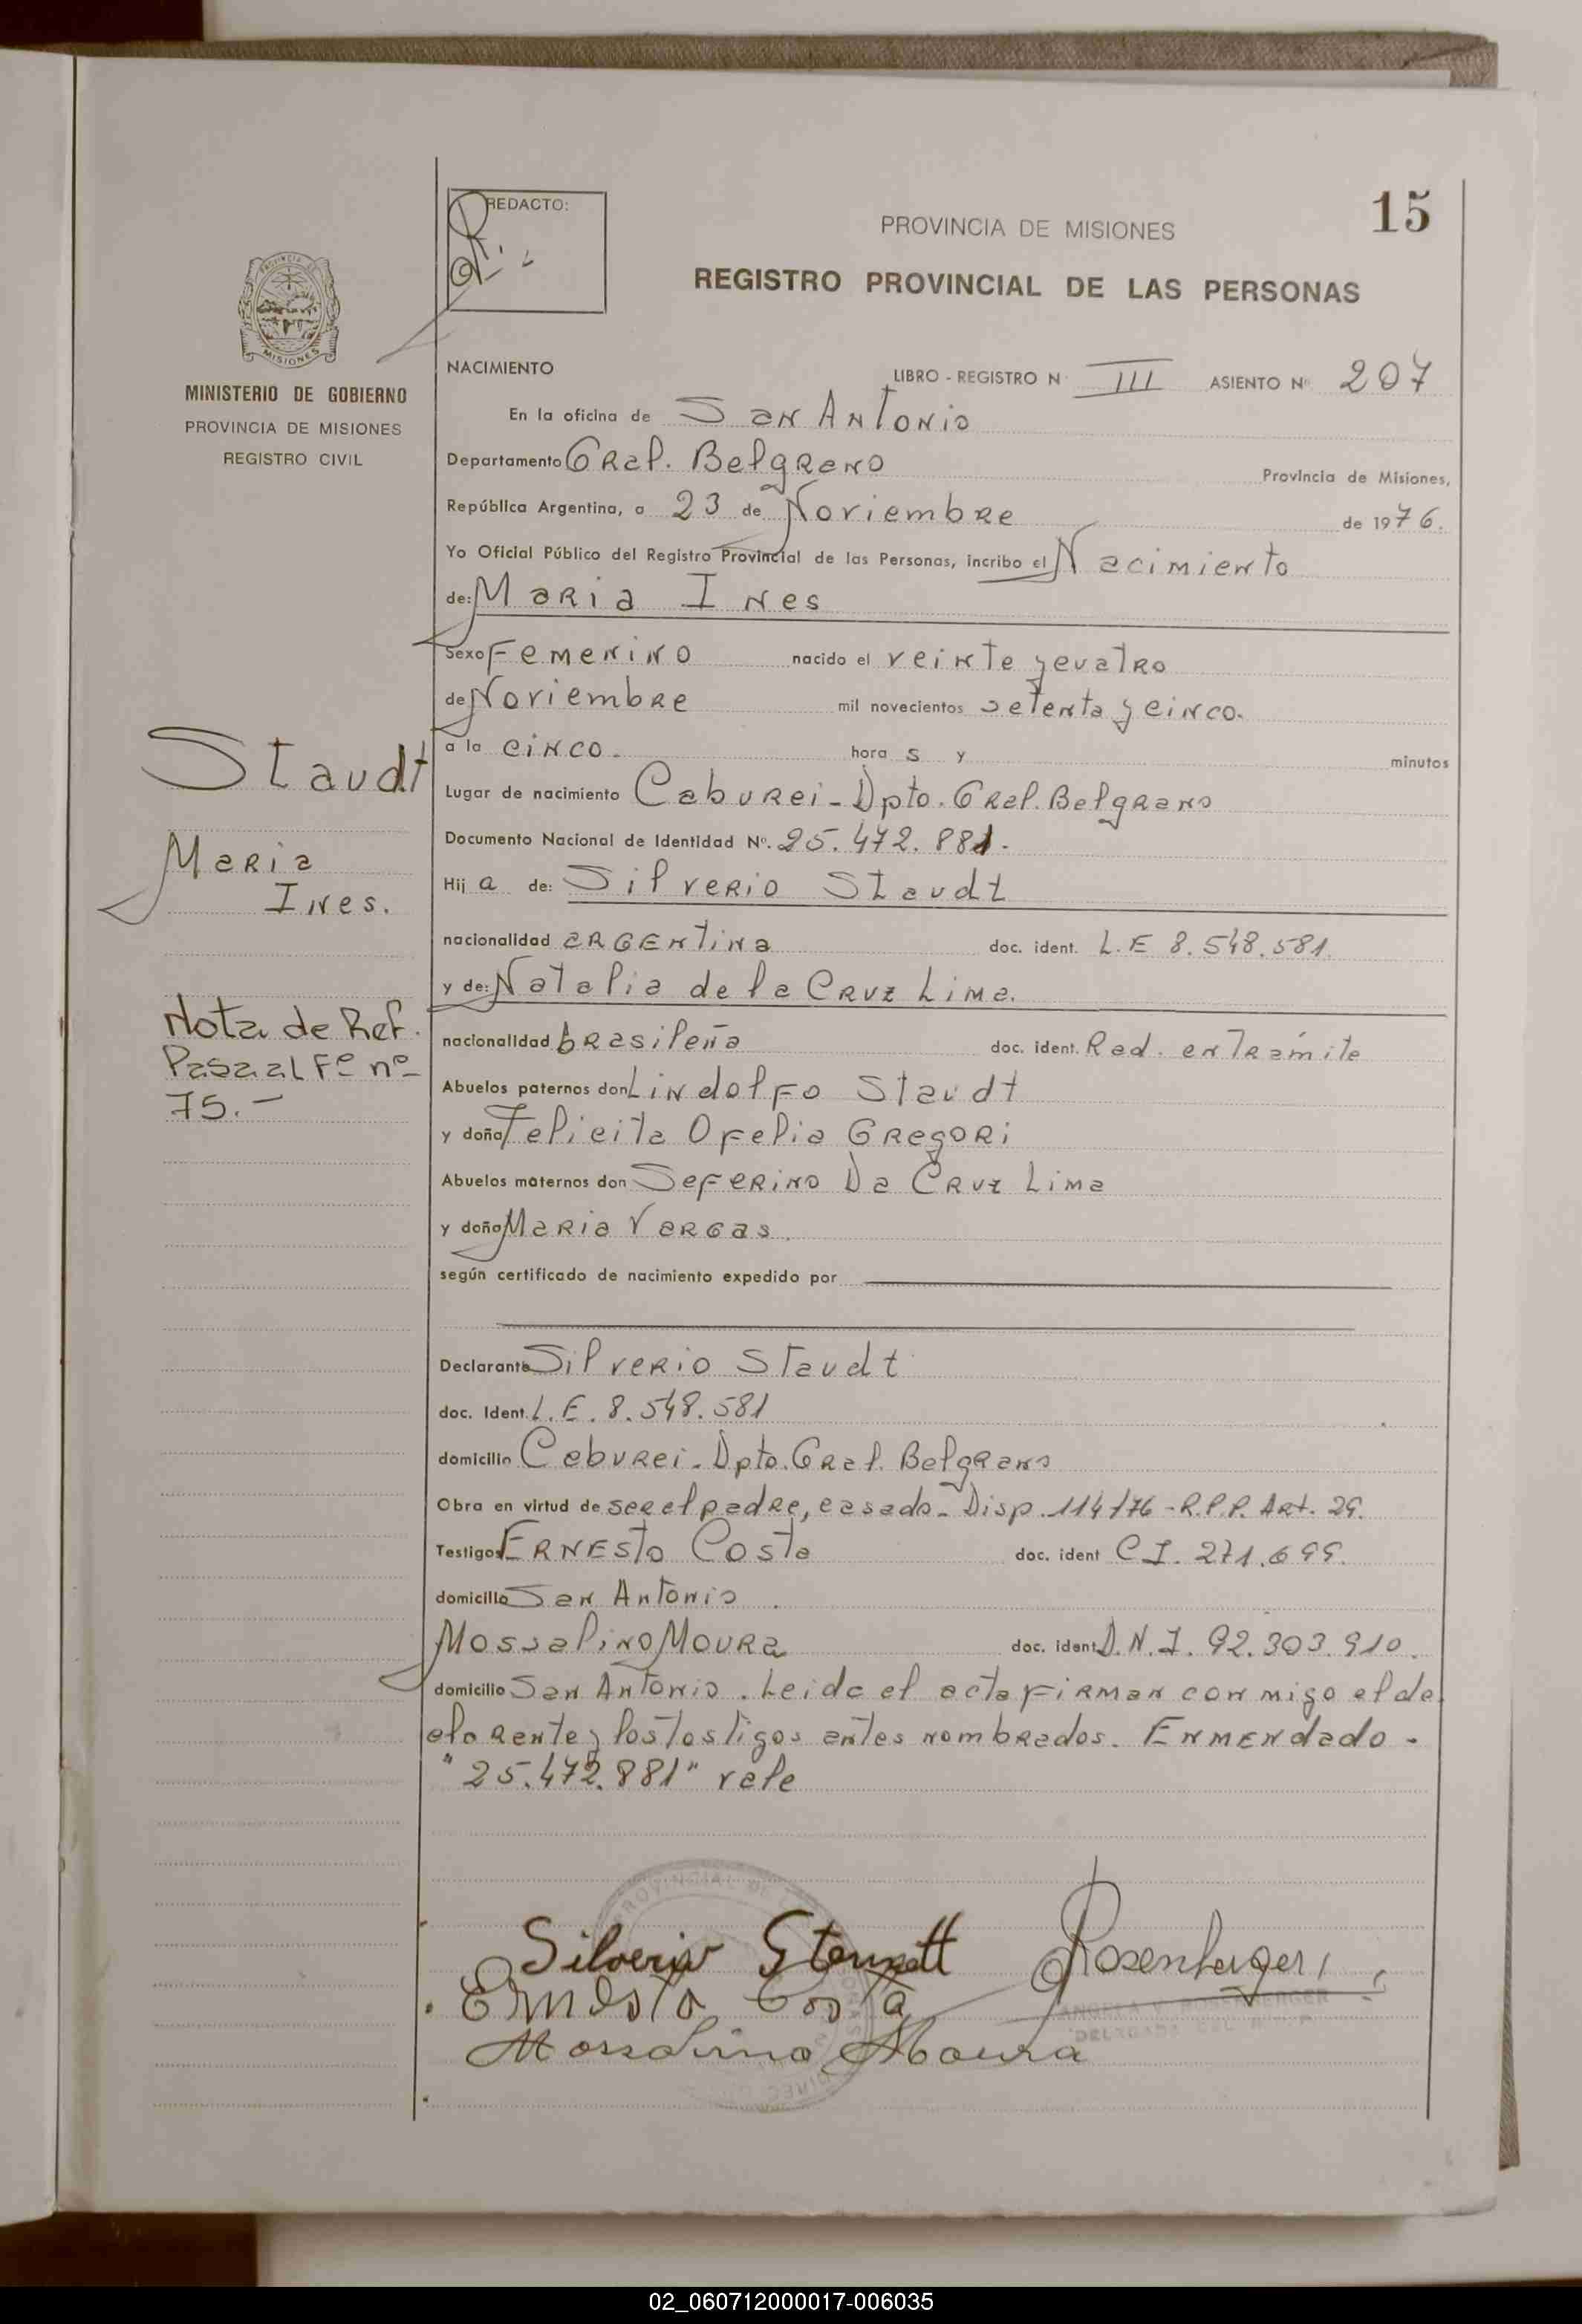 REDACTO:
15
PROVINCIA DE MISIONES
REGISTRO PROVINCIAL DE LAS PERSONAS
MISIONES
MINISTERIO DE GOBIERNO
PROVINCIA DE MISIONES
REGISTRO CIVIL
NACIMIENTO LIBRO - REGISTRO N III ASIENTO Nº 207
En la oficina de San Antonio
Departamento Gral. Belgrano Provincia de Misiones,
República Argentina, a 23 de Noviembre de 1976.
Yo Oficial Público del Registro Provincial de las Personas, incribo el Nacimiento
de: Maria Ines
Sexo Femenino nacido el veinte y cuatro
de Noviembre mil novecientos setenta y cinco.
a la cinco. hora s y minutos
Lugar de nacimiento Caburei - Dpto. Gral. Belgrano
Documento Nacional de Identidad Nº. 25.472.881.
Hij a de: Silverio Staudt
nacionalidad argentina doc. ident. L.E 8.548.581.
y de: Natalia de la Cruz Lima.
nacionalidad brasileña doc. ident. Rad. en Trámite
Abuelos paternos don Lindolfo Staudt
y doña Felicita Ofelia Gregori
Abuelos maternos don Seferino Da Cruz Lima
y doña Maria Vargas.
según certificado de nacimiento expedido por
Declarante Silverio Staudt
doc. Ident. L.E. 8.548.581
domicilio Caburei - Dpto. Gral. Belgrano
Obra en virtud de ser el padre, casado - Disp. 114/76 - R.P.P. Art. 29.
Testigos Ernesto Costa doc. ident C.I. 271.699.
domicilio San Antonio.
Mossalino Moura doc. ident. D.N.I. 92.303.910.
domicilio San Antonio. Leida el acta firman conmigo el de
clarante y los testigos antes nombrados. Enmendado -
"25.472.881" vale
Staudt
Maria
Ines.
Nota de Ref.
Pasa al Fº nº
75.-
Silverio Staudt
Rosenberger
Ernesto Costa
ANGELA V. ROSENBERGER
DELEGADA DEL R.P.P
Mossalino Moura
02_060712000017-006035